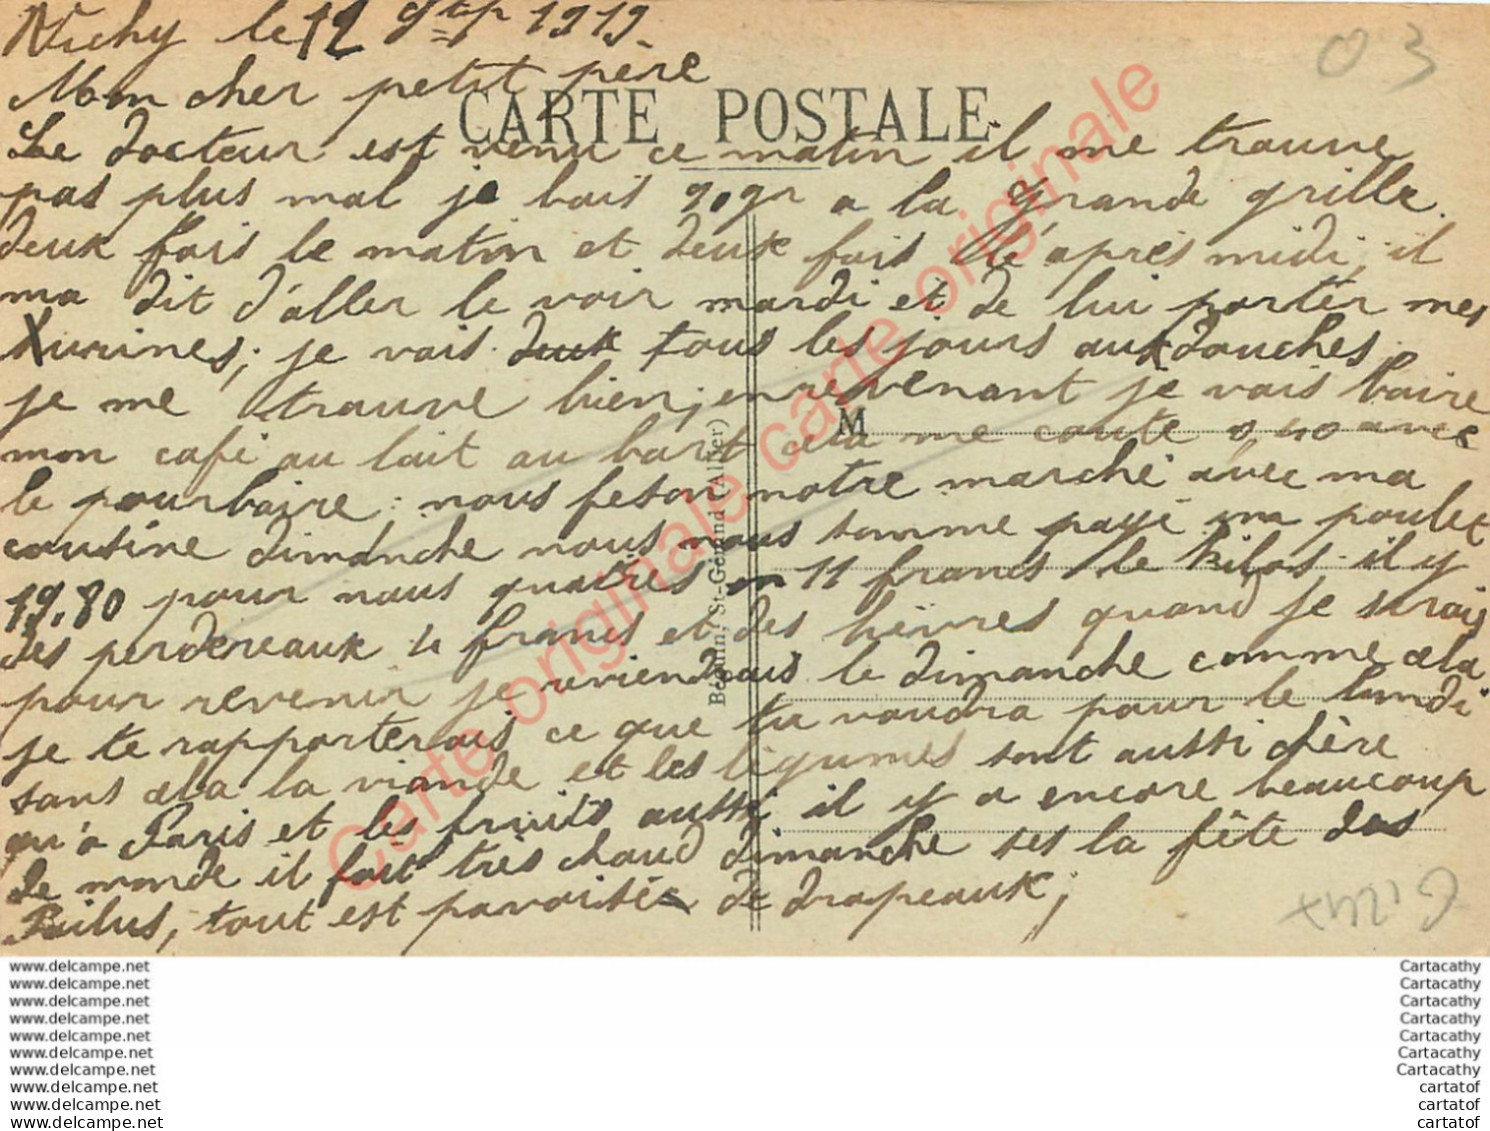 Vichy le 12 Sptp 1919
Mon cher petit père
CARTE POSTALE
Le docteur est venu ce matin il me trouve
pas plus mal je bois 90gr a la grande grille
deux fois le matin et deux fois le après midi, il
ma dit d'aller le voir mardi et de lui porter mes
urines; je vais deux tous les jours aux douches,
je me trouve bien, en revenant je vais boire
M
mon café au lait au bart cela me coute 0,40 avec
le pourboire : nous feson notre marché avec ma
cousine dimanche nous nous somme payé un poulet
19.80 pour nous quatres 11 francs le kilos il y
des perdereaux 4 francs et des lièvres quand je serais
pour revenir je reviendrais le dimanche comme cela
je te rapporterais ce que tu voudra pour le lundi
sans cela la viande et les légumes sont aussi chère
qu'a Paris et les fruits aussi, il y a encore beaucoup
de monde il fait très chaud dimanche ses la fête des
Poilus, tout est pavoisée de drapeaux;
Béguin, St-Gérand (Allier)
03
Carte originale carte originale
www.delcampe.net
www.delcampe.net
www.delcampe.net
www.delcampe.net
www.delcampe.net
www.delcampe.net
www.delcampe.net
www.delcampe.net
www.delcampe.net
www.delcampe.net
Cartacathy
Cartacathy
Cartacathy
Cartacathy
Cartacathy
Cartacathy
Cartacathy
cartatof
cartatof
cartatof